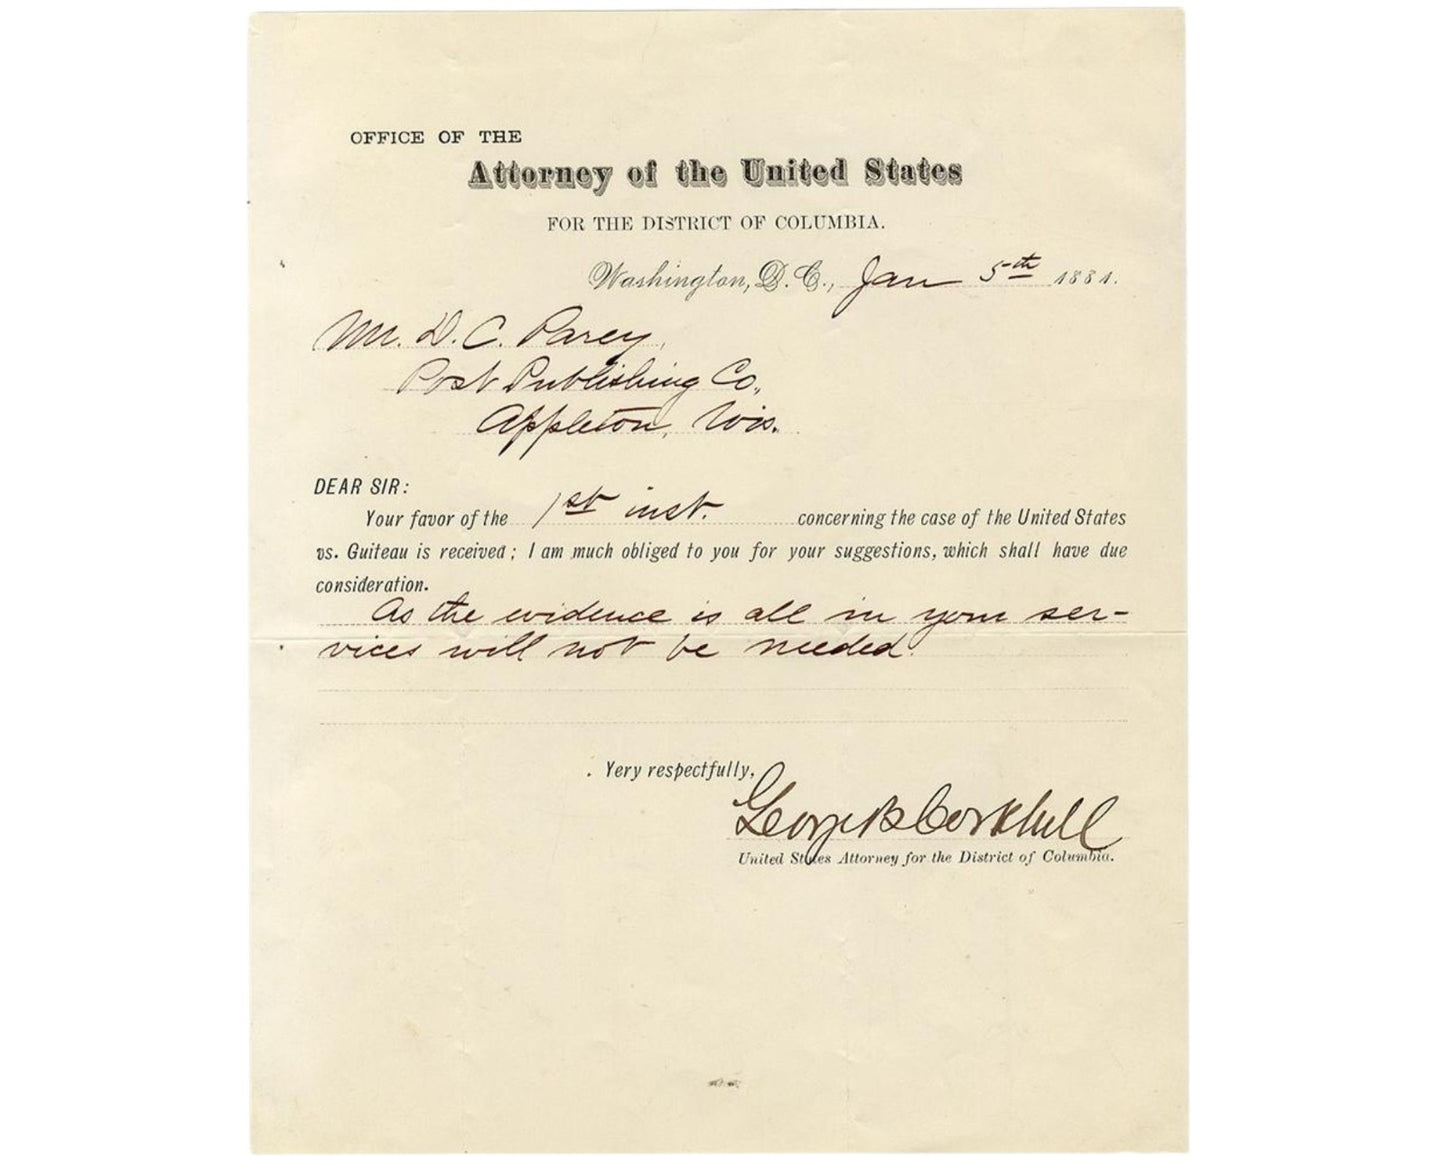 OFFICE OF THE
Attorney of the United States
FOR THE DISTRICT OF COLUMBIA.
Washington, D. C., Jan 5th 1881.
Mr. D. C. Parey,
Post Publishing Co.,
Appleton, Wis.
DEAR SIR:
Your favor of the 1st inst. concerning the case of the United States
vs. Guiteau is received; I am much obliged to you for your suggestions, which shall have due
consideration.
As the evidence is all in your ser-
vices will not be needed.
Yery respectfully,
George B Corkhill
United States Attorney for the District of Columbia.